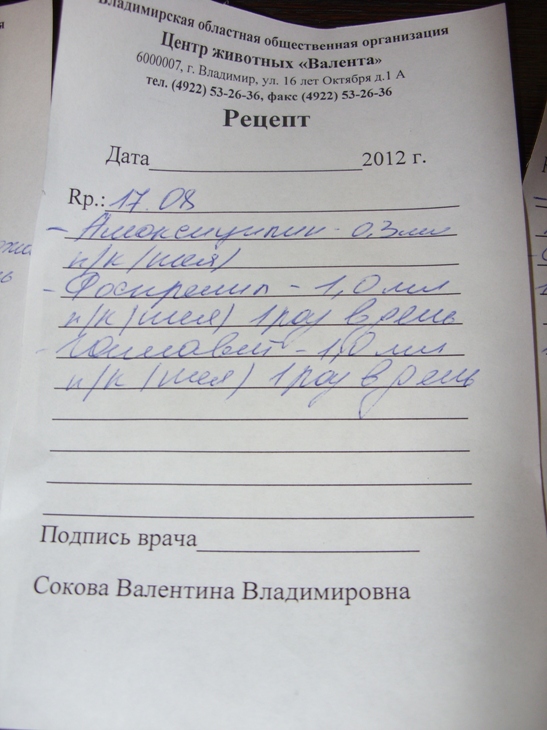 Владимирская областная общественная организация
Центр животных «Валента»
6000007, г. Владимир, ул. 16 лет Октября д.1 А
тел. (4922) 53-26-36, факс (4922) 53-26-36
Рецепт
Дата 2012 г.
Rp.: 17.08
- Амоксицилин - 0,3 мл
п/к (шея)
- Фоспренил - 1,0 мл
п/к (шея) 1 раз в день
- Гамавит - 1,0 мл
п/к (шея) 1 раз в день
Подпись врача
Сокова Валентина Владимировна